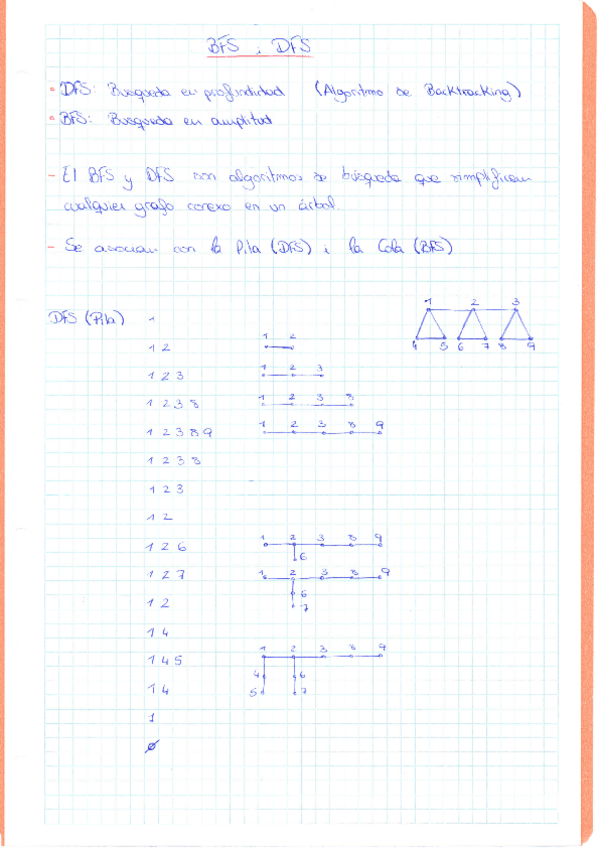 BFS i DFS
• DFS: Busqueda en profundidad (Algoritmo de Backtracking)
• BFS: Busqueda en amplitud
- El BFS y DFS son algoritmos de búsqueda que simplifican
cualquier grafo conexo en un árbol.
- Se asocian con la Pila (DFS) i la Cola (BFS)
1 2 3
4 5 6 7 8 9
DFS (Pila) 1
1 2 1 2
1 2 3 1 2 3
1 2 3 8 1 2 3 8
1 2 3 8 9 1 2 3 8 9
1 2 3 8
1 2 3
1 2
1 2 6 1 2 3 8 9
6
1 2 7 1 2 3 8 9
6
1 2 7
1 4
1 4 5 1 2 3 8 9
4 6
1 4 5 7
1
ø